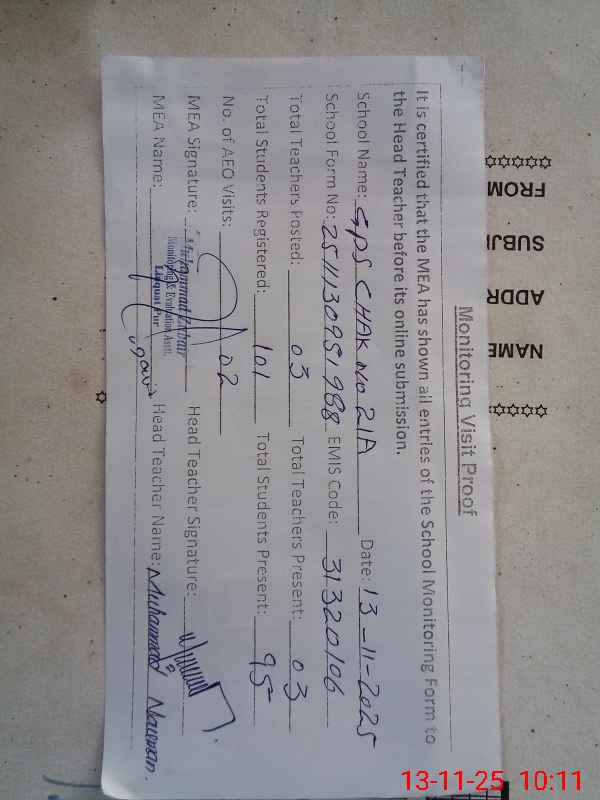 Monitoring Visit Proof
It is certified that the MEA has shown all entries of the School Monitoring Form to
the Head Teacher before its online submission.
School Name: GPS CHAK No 21A Date: 13-11-2025
School Form No: 2511130951988 EMIS Code: 31320106
Total Teachers Posted: 03 Total Teachers Present: 03
Total Students Registered: 101 Total Students Present: 95
No. of AEO Visits: 02
MEA Signature: Head Teacher Signature:
Muhammad
Monitoring & Evaluation Asstt.
Liaquat Pur
MEA Name: Head Teacher Name: Muhammad Nauman.
FROM
SUBJE
ADDR
NAME
13-11-25 10:11